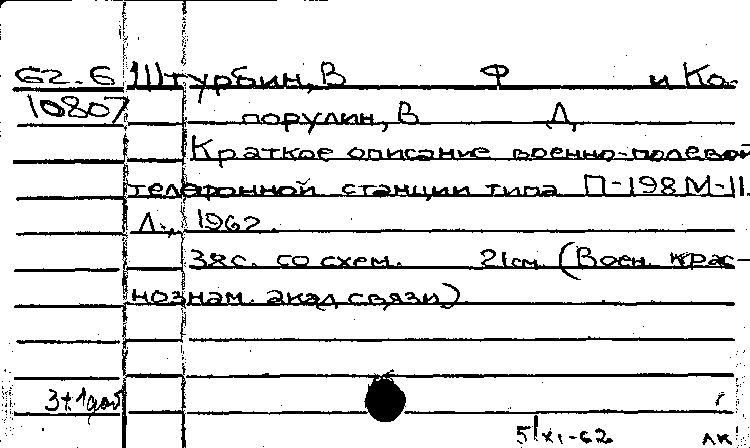 62.6 Штурбин, В Ф и Ка-
10807 порулин, В Д,
Краткое описание военно-полевой
телефонной станции типа П-198М-II.
Л., 1962.
38с. со схем. 21см (Воен. крас-
нознам. акад связи)
3+1доб
5/XI-62 ЛК